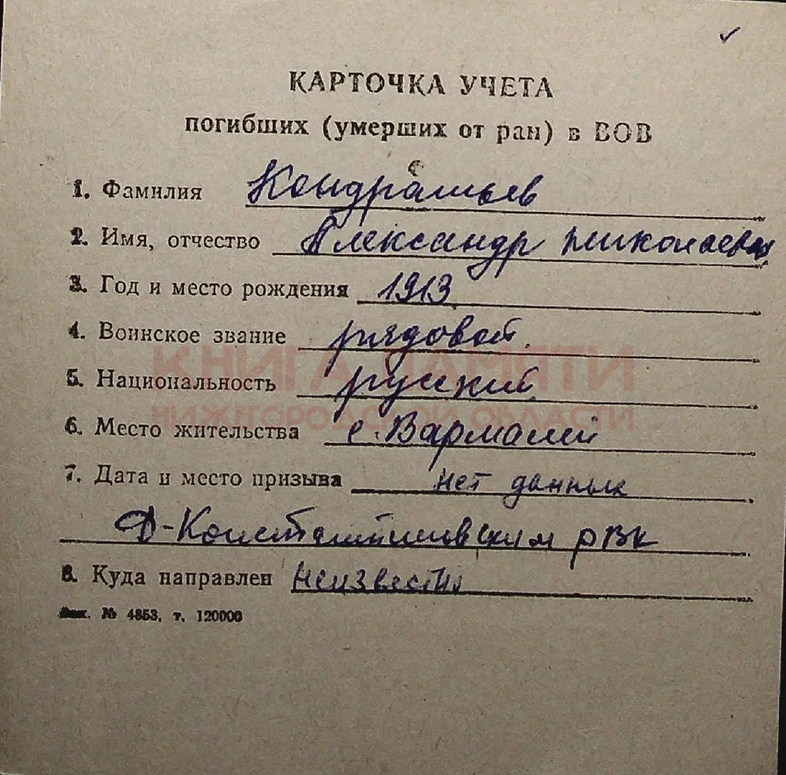 КАРТОЧКА УЧЕТА
погибших (умерших от ран) в ВОВ
1. Фамилия Кондратьев
2. Имя, отчество Александр Николаевич
3. Год и место рождения 1913
4. Воинское звание рядовой.
5. Национальность русский
КНИГА ПАМЯТИ
НИЖЕГОРОДСКОЙ ОБЛАСТИ
6. Место жительства с. Вармалей
7. Дата и место призыва нет данных
Д-Константиновским РВК
8. Куда направлен Неизвестно
Зак. № 4853, т. 120000